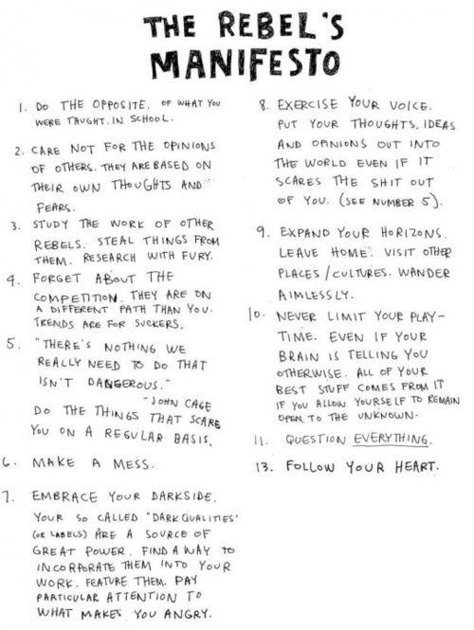 THE REBEL'S
MANIFESTO
1. DO THE OPPOSITE. OF WHAT YOU
WERE TAUGHT. IN SCHOOL.
2. CARE NOT FOR THE OPINIONS
OF OTHERS. THEY ARE BASED ON
THEIR OWN THOUGHTS AND
FEARS.
3. STUDY THE WORK OF OTHER
REBELS. STEAL THINGS FROM
THEM. RESEARCH WITH FURY.
4. FORGET ABOUT THE
COMPETITION. THEY ARE ON
A DIFFERENT PATH THAN YOU.
TRENDS ARE FOR SUCKERS.
5. "THERE'S NOTHING WE
REALLY NEED TO DO THAT
ISN'T DANGEROUS."
-JOHN CAGE
DO THE THINGS THAT SCARE
YOU ON A REGULAR BASIS.
6. MAKE A MESS.
7. EMBRACE YOUR DARKSIDE.
YOUR SO CALLED "DARK QUALITIES"
(OR LABELS) ARE A SOURCE OF
GREAT POWER. FIND A WAY TO
INCORPORATE THEM INTO YOUR
WORK. FEATURE THEM. PAY
PARTICULAR ATTENTION TO
WHAT MAKES YOU ANGRY.
8. EXERCISE YOUR VOICE.
PUT YOUR THOUGHTS, IDEAS
AND OPINIONS OUT INTO
THE WORLD EVEN IF IT
SCARES THE SHIT OUT
OF YOU. (SEE NUMBER 5).
9. EXPAND YOUR HORIZONS.
LEAVE HOME. VISIT OTHER
PLACES/CULTURES. WANDER
AIMLESSLY.
10. NEVER LIMIT YOUR PLAY-
TIME. EVEN IF YOUR
BRAIN IS TELLING YOU
OTHERWISE. ALL OF YOUR
BEST STUFF COMES FROM IT
IF YOU ALLOW YOURSELF TO REMAIN
OPEN TO THE UNKNOWN.
11. QUESTION EVERYTHING.
13. FOLLOW YOUR HEART.